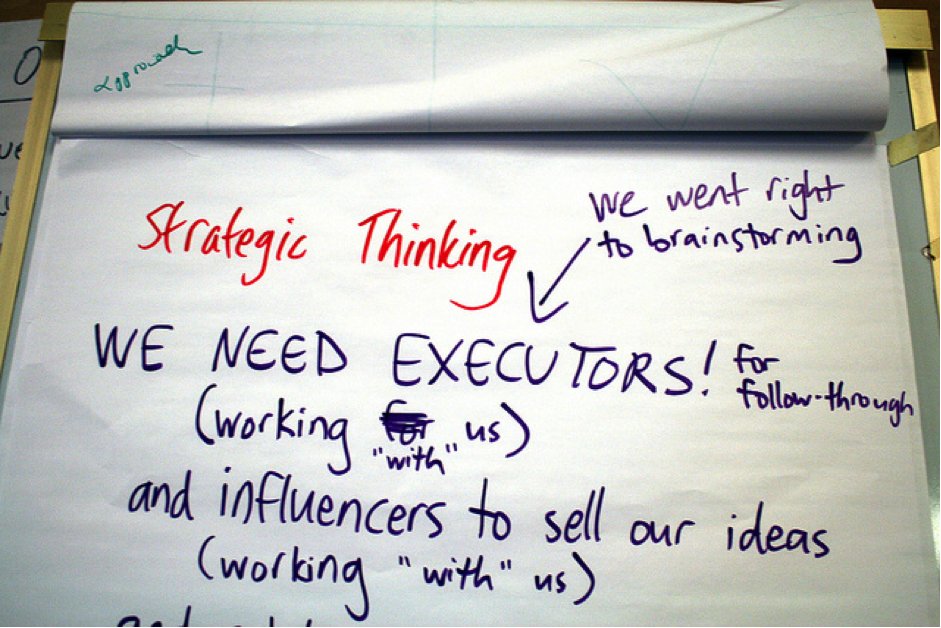 Approach
we went right
to brainstorming
Strategic Thinking
WE NEED EXECUTORS! for
follow-through
(working us)
"with"
and influencers to sell our ideas
(working "with" us)